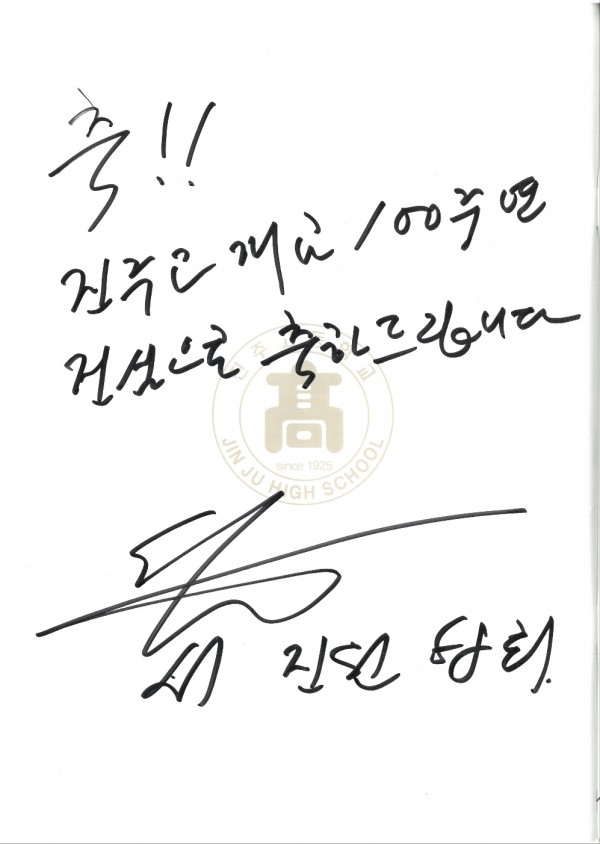 축!!
진주고 개교 100주년
진심으로 축하드립니다
진주고등학교
高
since 1925
JIN JU HIGH SCHOOL
진현